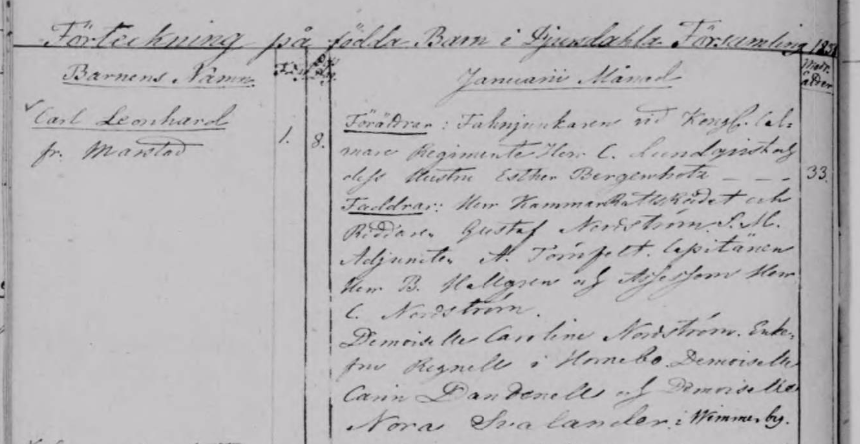 Förteckning på födda Barn i Djursdahla Församling
Barnens Namn
Januarii Månad
Carl Leonhard
fr. Marstad
1. 8.
Föräldrar: Fahnjunkaren vid Kongl. Cal-
mare Regimente Herr C. Lundqvist och
dess Hustru Esther Bergenholtz - - -
33.
Faddrar: Herr Kammar Rättsrådet och
Riddaren Gustaf Nordström. S. M.
Adjuncten A. Törnfelt. Capitainen
Herr B. Hallgren och Assessorn Herr
C. Nordström.
Demoiselle Caroline Nordström. Enke-
fru Regnell i Hornebo. Demoiselle
Carin Dandenell och Demoiselle
Nora Svalander i Wimmerby.